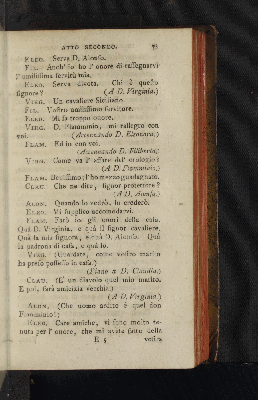 ATTO SECONDO. 73
ELEO. Serva D. Alonso.
FIL. Anch' io ho l' onore di rassegnarvi
l' umilissima servitù mia.
ELEO. Serva divota. Chi è questo
signore? (A D. Virginia.)
VIRG. Un cavaliere Siciliano.
FIL. Vostro umilissimo servitore.
ELEO. Mi fa troppo onore.
VIRG. D. Flamminio, mi rallegro con
voi. (Accennando D. Eleonora.)
FLAM. Ed io con voi.
(Accennando D. Filiberto.)
VIRG. Come va l' affare del
(A D. Flamminio.)
FLAM. Benissimo; l' ho
CLAU. Che ne dite, signor protettore?
(A D. Alonso.)
ALON. Quando lo vedrò, lo crederò.
ELEO. Vi supplico accomodarvi.
FLAM. Farò io gli onori della casa.
Quà D. Virginia, e quà il signor cavaliere.
Quà la mia signora, e quà D. Alonso. Quà
la padrona di casa, e quà io.
VIRG. (Guardate, come vostro marito
ha preso possesso in casa.)
(Piano a D. Claudia.)
CLAU. (E' un diavolo quel mio marito.
E poi, sarà amicizia vecchia.)
(A D. Virginia.)
ALON. (Che uomo ardito è quel don
Flamminio!)
ELEO. Care amiche, vi sono molto te-
nuta per l' onore, che mi avete fatto della
E 5 vostra